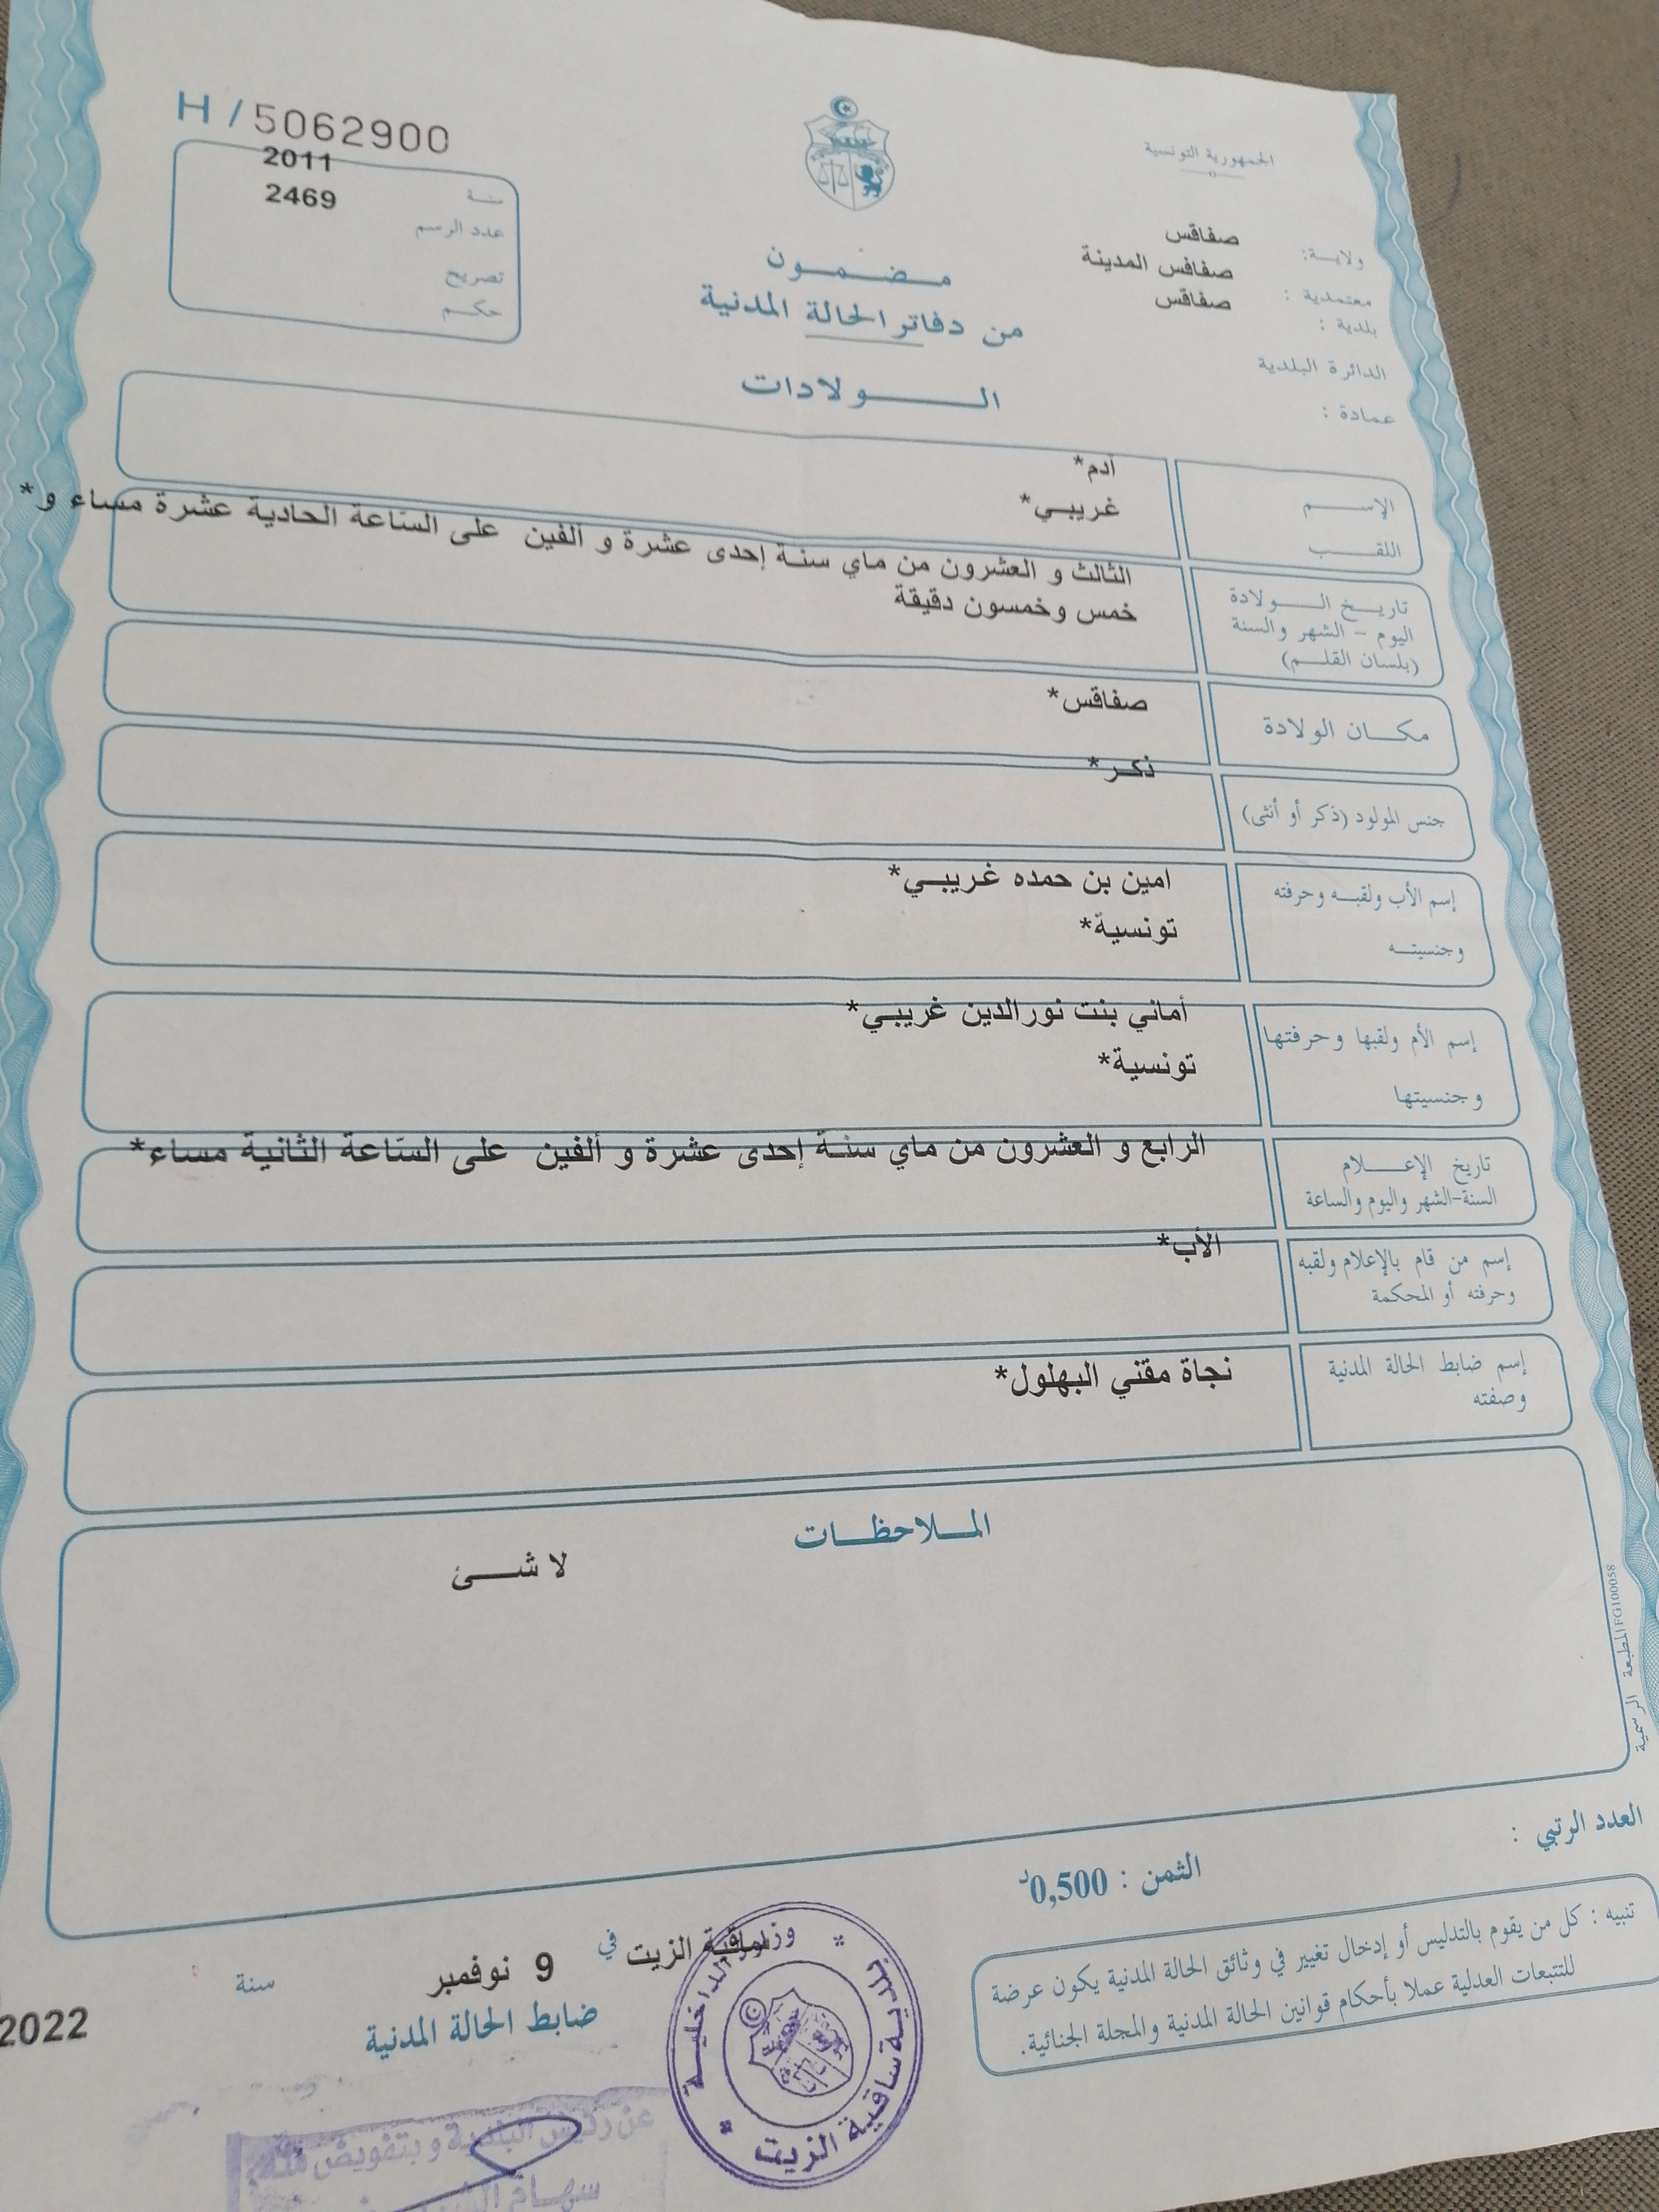 H / 5062900
الجمهورية التونسية
ولاية: صفاقس
معتمدية : صفاقس المدينة
بلدية : صفاقس
الدائرة البلدية
عمادة :
سنة 2011
عدد الرسم 2469
تصريح
حكم
مضمون
من دفاتر الحالة المدنية
الولادات
الإسم آدم*
اللقب غريبي*
تاريخ الولادة
اليوم - الشهر والسنة
(بلسان القلم)
الثالث و العشرون من ماي سنة إحدى عشرة و ألفين على الساعة الحادية عشرة مساء و*
خمس وخمسون دقيقة
مكان الولادة صفاقس*
جنس المولود (ذكر أو أنثى) ذكر*
إسم الأب ولقبه وحرفته امين بن حمده غريبي*
وجنسيته تونسية*
إسم الأم ولقبها وحرفتها أماني بنت نورالدين غريبي*
وجنسيتها تونسية*
تاريخ الإعلام
السنة-الشهر واليوم والساعة
الرابع و العشرون من ماي سنة إحدى عشرة و ألفين على الساعة الثانية مساء*
إسم من قام بالإعلام ولقبه
وحرفته أو المحكمة
الأب*
إسم ضابط الحالة المدنية
وصفته
نجاة مقني البهلول*
الملاحظات
لا شئ
المطبعة الرسمية FG100058
العدد الرتبي :
الثمن : 0,500د
تنبيه : كل من يقوم بالتدليس أو إدخال تغيير في وثائق الحالة المدنية يكون عرضة
للتتبعات العدلية عملا بأحكام قوانين الحالة المدنية والمجلة الجنائية.
ساقية الزيت في 9 نوفمبر سنة 2022
ضابط الحالة المدنية
وزارة الداخلية
بلدية ساقية الزيت
عن رئيس البلدية و بتفويض منه
سهام